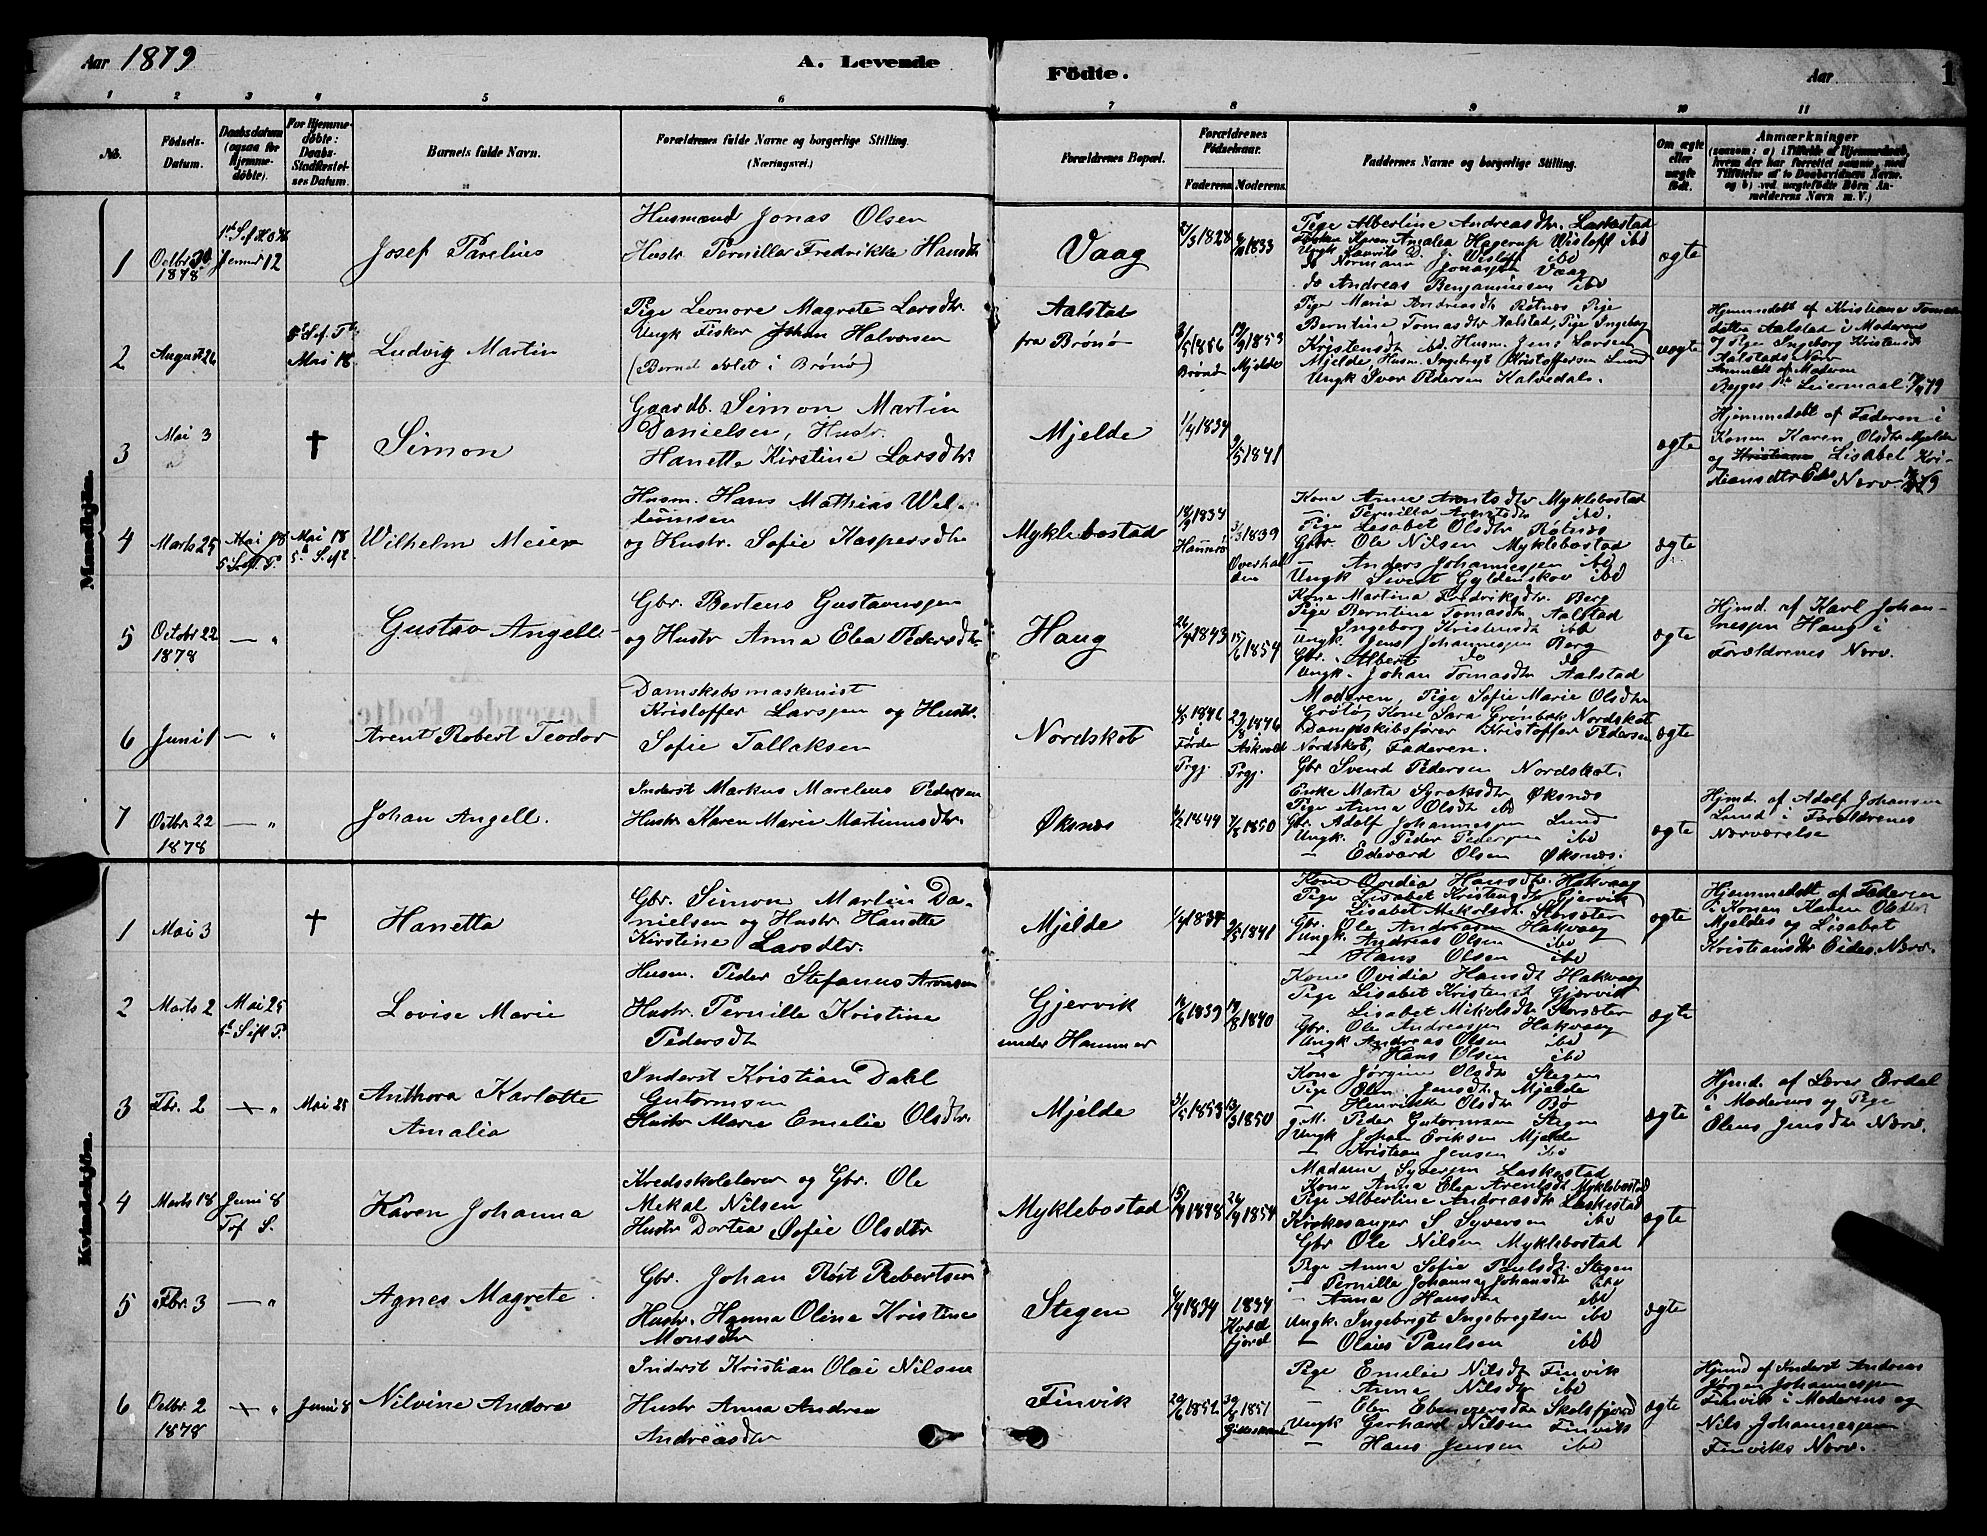 1
Aar 1879
A. Levende
Födte.
Aar
1
1 2 3 4 5 6 7 8 9 10 11
No.
Födsels-
Datum.
Daabsdatum
(ogsaa for
Hjemme-
döbte).
For Hjemme-
döbte:
Daabs-
Stadfæstel-
ses Datum.
Barnets fulde Navn.
Forældrenes fulde Navne og borgerlige Stilling.
(Næringsvei.)
Forældrenes Bopæl.
Forældrenes
Födselsaar.
Faderens.
Moderens.
Faddernes Navne og borgerlige Stilling.
Om ægte
eller
uægte
födt.
Anmærkninger
(saasom: a) i Tilfælde af Hjemmedaab,
hvem der har forrettet samme, med
Tilföielse af to Daabsvidners Navne.
og b) ved uægtefödte Börn An-
melderens Navn m. V.)
Mandkjön.
1
Octbr 30
1878
Januar 12
Josef Parelius
Husmand Jonas Olsen
Hustr Pernilla Fredrikke Hansdtr
Vaag
1828
1833
Pige Albertine Andreasdtr. Laskestad
Frøken Karen Amalia Hagerup Wisløff ibd
Ungk Laurits D. J. Wisløff ibd
do Normann Jonassen Vaag
do Andreas Benjaminsen ibd
ægte
2
August 26
Mai 18
Ludvig Martin
Pige Leonore Magrete Larsdtr.
Ungk Fisker Johan Halvorsen
(Barnet avlet i Brønø)
Aalstad
fra Brønø
2/5 1856
Brønø
19/9 1853
Mjelde
Pige Maria Andreasdtr Røtnes Pige
Berntine Tomasdtr Aalstad, Pige Ingeborg
Kristensdtr ibd. Husm. Jens Larsen
Mjelde, Husm. Ingebrigt Kristoffersen Lund
Ungk Iver Pedersen Kalvedal.
uægte
Hjemmedøbt af Kristiane Tomas
datter Aalstad i Moderens
og Pige Ingeborg Kristensdt
Aalstads Nærv
Anmeldt af Moderen
Begges 1ste Leiermaal.
3
Mai 3
†
Simon
Gaardb. Simon Martin
Danielsen, Hustr.
Hanette Kirstine Larsdtr.
Mjelde
1/4 1834
9/5 1841
ægte
Hjemmedøbt af Faderen i
Konen Karen Olsdtr Mjelde
og Kristiane Lisabet Kri-
stiansdtr Eide Nærv
4
Marts 25
Mai 18
Mai 18
Wilhelm Meier
Husm. Hans Mathias Wil-
og Hustr. Sofie Kaspersdtr
Myklebostad
1834
Hammerø
3/3 1839
Overhal
den
Kone Anne Arntsdtr Myklebostad
— Pernilla Arentsdtr ibd.
Pige Lisabet Olsdtr Røtnes
Gbr. Ole Nilsen Myklebostad
— Anders Johannessen ibd
Ungk Sivert Gyldenskov ibd
ægte
5
Octobr 22
1878
— "
Gustav Angell
Gbr. Berteus Gustavussen
og Hustr Anna Elea Pedersdtr.
Haug
26/4 1843
15/6 1854
Kone Martina Fredriksdtr Berg
Pige Berntine Tomasdtr Aalstad
— Ingeborg Kristensdtr ibd
Ungk. Jens Johannessen Berg
Gbr. Albert do do
Ungk. Johan Tomasdtr Aalstad
ægte
Hjmd. af Karl Johan-
nesen Haug i
Forældrenes Nærv.
6
Juni 1
— "
Arent Robert Teodor
Damskibsmaskinist
Kristoffer Larssen og Hustr.
Sofie Tollaksen
Nordskot
1846
i
Førde
Prgj.
1846
i
Askvold
Prgj.
Moderen, Pige Sofie Marie Olsdtr
Grøtø, Kone Sara Grønbæk Nordskot
Dampskibsfører Kristoffer Pedersen
Nordskot, Faderen.
Gbr Svend Pedersen Nordskot.
ægte
7
Octbr. 22
1878
— "
Johan Angell.
Inderst Markus Marelius Pedersen
Hustr Karen Marie Martinusdtr.
Øksnes
1849
7/8 1850
Enke Marta Syraksdtr Øksnes
Pige Anna Olsdtr ibd
Gbr. Adolf Johannessen Lund
Ungk. Peder Pedersen ibd
— Edevard Olsen Øksnes.
ægte
Hjmd. af Adolf Johansen
Lund i Forældrenes
Nærværelse
Kvindekjön.
1
Mai 3
†
Hanetta
Gbr. Simon Martin Da-
nielsen og Hustr. Hanette
Kirstine Larsdtr.
Mjelde
1/4 1834
9/5 1841
Kone Ovidia Hansdtr. Hakvaag
Pige Lisabet Kristensdtr Gjervik
Lisabet Mikalsdtr Storsæter
Gbr. Ole Andreasen Hakvaag
Ungk. Andreas Olsen ibd
— Hans Olsen ibd
ægte
Hjemmedøbt af Faderen
i Konen Karen Olsdtr
Mjeldes og Lisabet
Kristiansdtr Eides Nærv.
2
Marts 2
Mai 25
Lovise Marie
Husm. Peder Stefanus Aronsen
Hustr. Pernille Kristine
Pedersdtr
Gjervik
under Hammer
1839
1840
Kone Ovidia Hansdtr Hakvaag
Pige Lisabet Kristensdtr Gjervik
Lisabet Mikalsdtr Storsæter
Gbr. Ole Andreassen Hakvaag
Ungk Andreas Olsen ibd
— Hans Olsen ibd
ægte
3
Fbr. 2
Mai 25
Anthora Karlotte
Amalia
Inderst Kristian Dahl
Gutormsen
Hustr Marie Emelie Olsdtr.
Mjelde
3/5 1853
1850
Kone Jørgine Olsdtr Stegen
Pige Olen Jensdtr Mjelde
— Henrikke Olsdtr Bø
g.M. Peder Gutormsen Stegen
Ungk Johan Eriksen Mjelde
— Kristian Jensen ibd
ægte
Hjmd. af Lærer Erdal
i Moderens og Pige
Olens Jensdtr Nærv.
4
Marts 18
Juni 8
Karen Johanna
Kredsskolelærer og Gbr. Ole
Mekal Nilsen
Hustr Dortea Sofie Olsdtr
Myklebostad
1848
26/4 1854
Madame Syversen Laskestad
Kone Anna Elea Arentsdtr Myklebostad
Pige Albertine Andreasdtr Laskestad
Kirkesanger S Syversen ibd
Gbr Ole Nilsen Myklebostad
ægte
5
Fbr. 3
— "
Agnes Magrete
Gbr. Johan Røst Robertsen
Hustr. Hanna Olina Kristine
Monsdtr
Stegen
1834
1834
Kvæd
fjord
Pige Anna Sofie Paulsdtr Stegen
— Pernilla Johanna Johansdtr ibd
— Anna Hansdtr ibd
Ungk. Ingebrigt Ingebrigtsen ibd
— Olaus Paulsen ibd
ægte
6
Octbr. 2
1878
Juni 8
Nilvine Andora
Inderst Kristian Olai Nilsen
Hustr Anna Andrea
Andreasdtr
Finvik
1852
1851
Gildeskaal
Pige Emelie Nilsdtr Finvik
— Anna Nilsdtr ibd
— Elen Ebenezersdtr Skelsfjord
Ungk Gerhard Nilsen Finvik
— Hans Jensen ibd
ægte
Hjmd af Inderst Andreas
Jørgen Johannessen
Finvik i Moderens og
Nils Johannessen
Finviks Nærv.